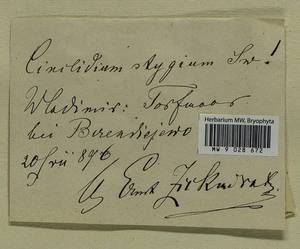 Cinclidium stygium Sw!
Wladimir: Torfmoor
bei Berendiejewo
20/VII 896
Ernst Zickendrath
Herbarium MW, Bryophyta
MW 9 028 672